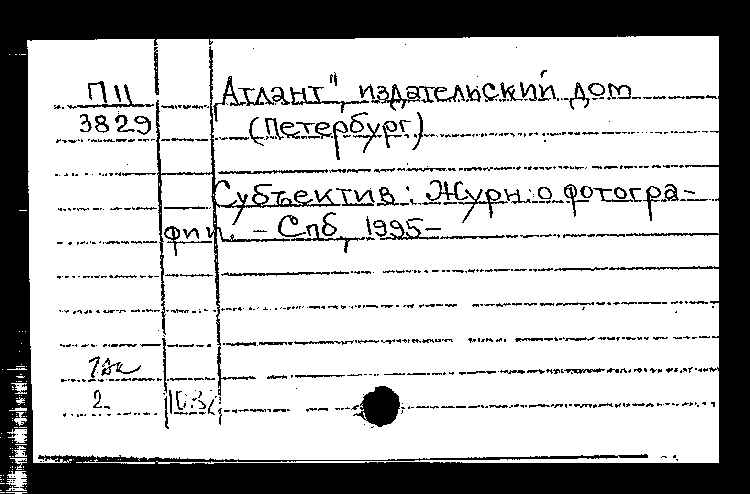 П11 Атлант", издательский дом
3829 (Петербург)
Субъектив: Журн. о фотогра-
фии. - Спб, 1995-
2